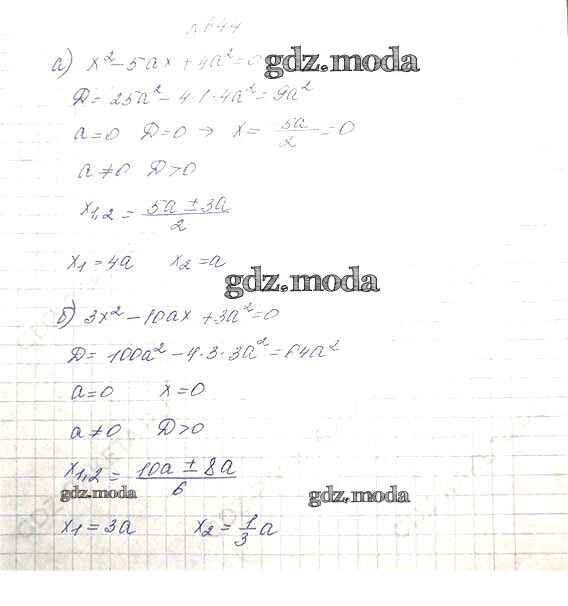 №644
а) x² - 5ax + 4a² = 0 gdz.moda
Д = 25a² - 4·1·4a² = 9a²
a = 0 Д = 0 → x = 5a/2 = 0
a ≠ 0 Д > 0
x₁,₂ = (5a ± 3a)/2
x₁ = 4a x₂ = a
gdz.moda
б) 3x² - 10ax + 3a² = 0
Д = 100a² - 4·3·3a² = 64a²
a = 0 x = 0
a ≠ 0 Д > 0
x₁,₂ = (10a ± 8a)/6
gdz.moda gdz.moda
x₁ = 3a x₂ = 1/3 a